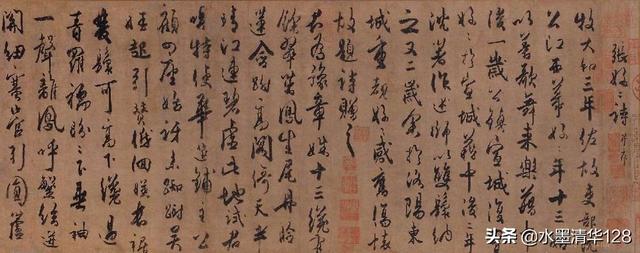 張好好詩 并序
牧大和三年佐故吏部沈
公江西幕好好年十三始
以善歌舞來樂籍中
後一歲公鎮宣城復置
好好於宣城籍中後二年
沈著作述師以雙鬟納
之又二歲余於洛陽東
城重覩好好感舊傷懷
故題詩贈之
君為豫章姝十三纔有
餘翠茁鳳生尾丹臉
蓮含跗高閣倚天半
晴江連碧虛此地試君
唱特使華筵鋪主公
顧四座始訝來踟躕吳
娃起引贊低佪映長裾
雙鬟可高下纔過
青羅襦盼盼下垂袖
一聲雛鳳呼繁絃迸
關紐塞管引圓蘆
头条 @水墨清华128